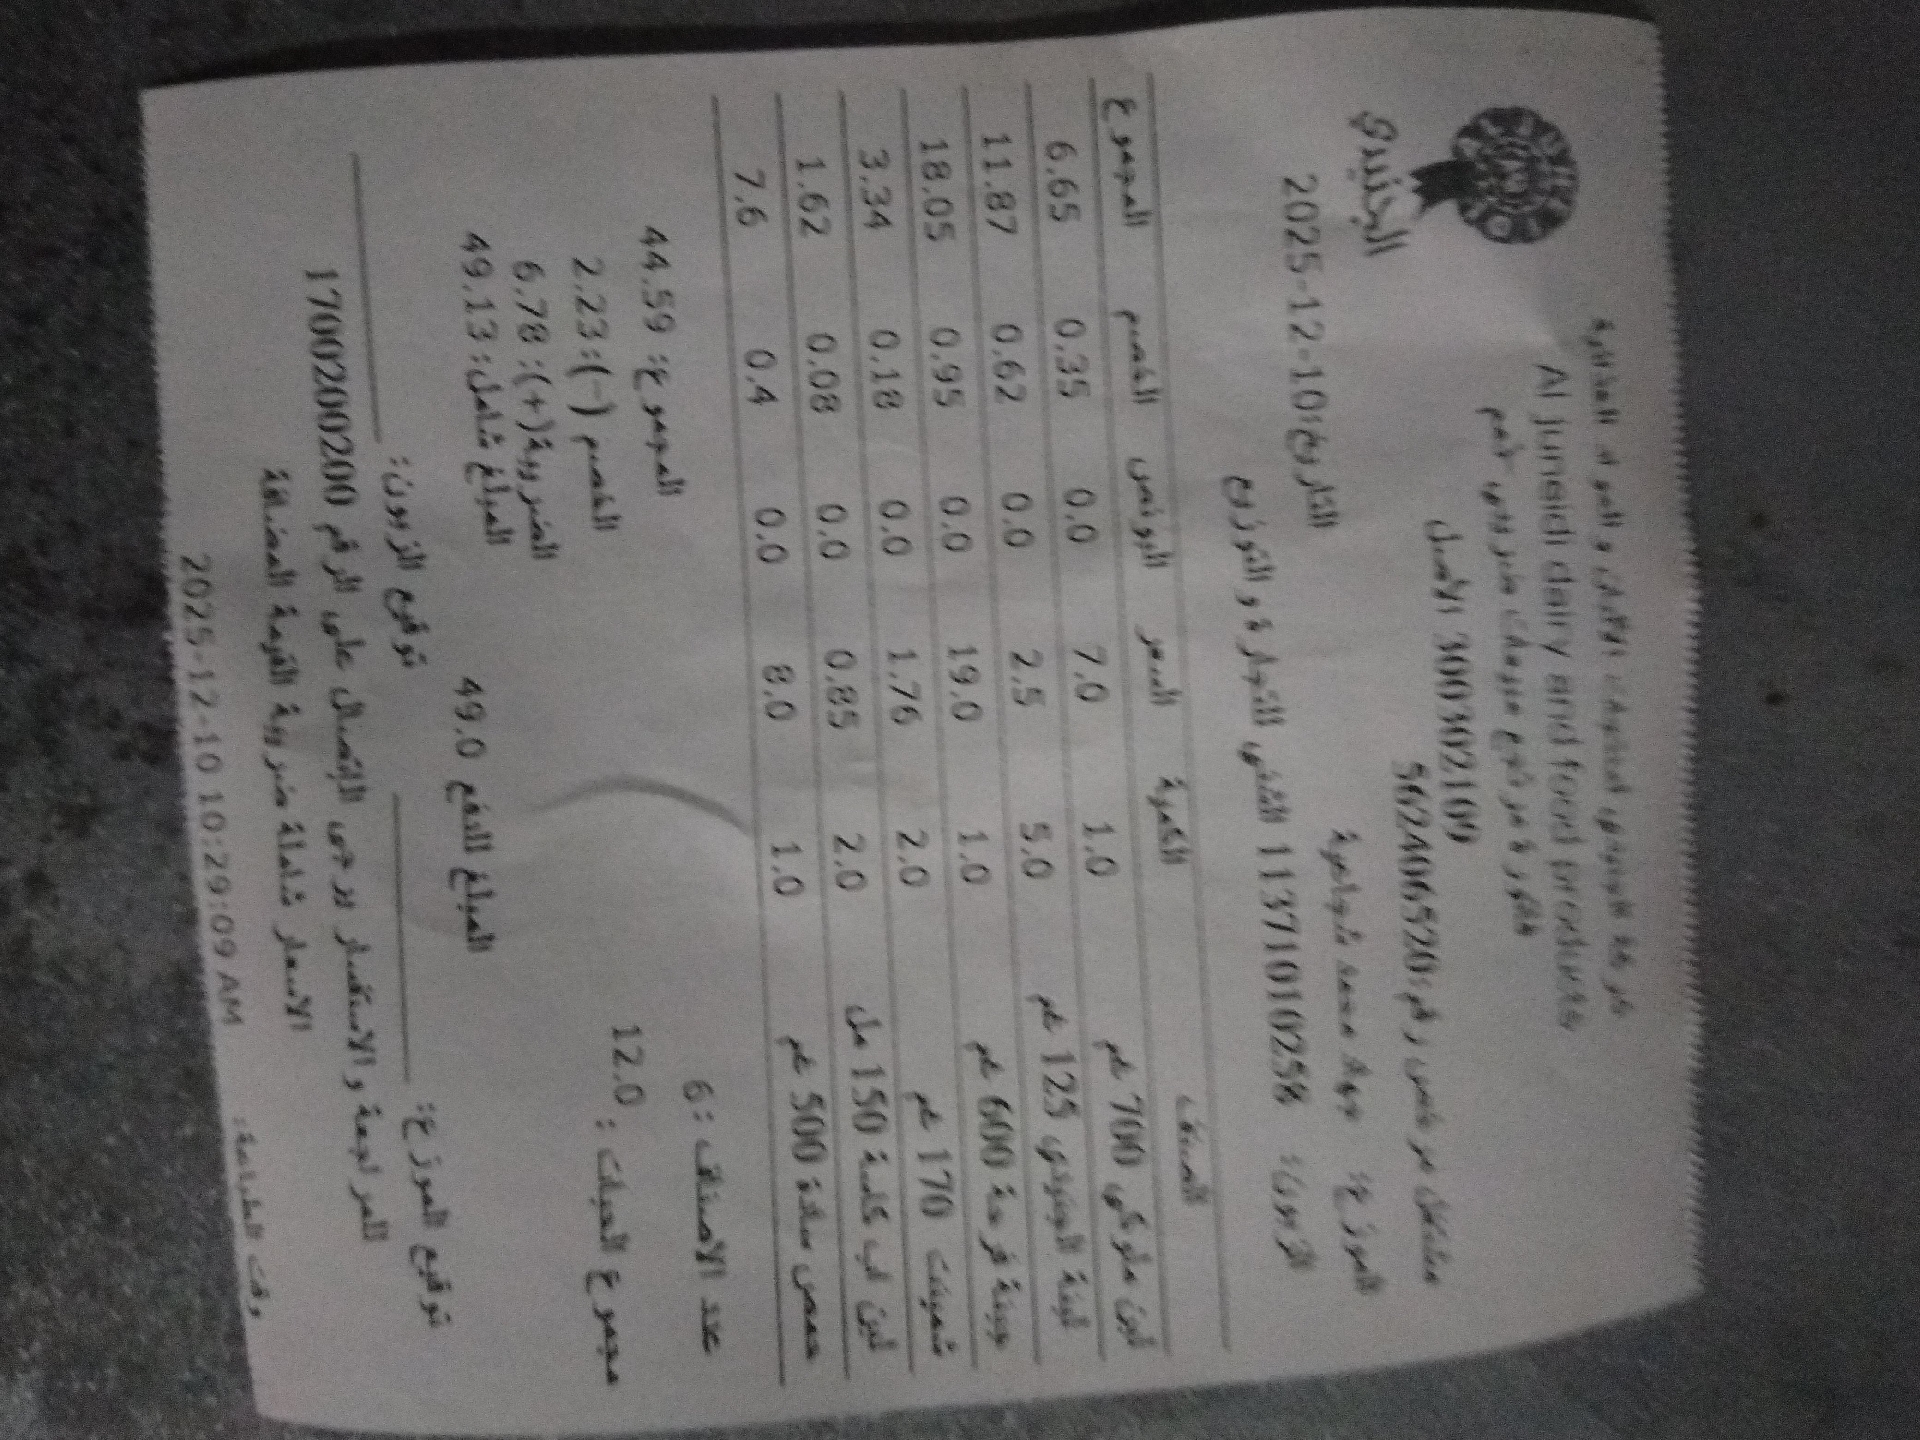 الجنيدي
شركة الجنيدي لمنتوجات الألبان و المواد الغذائية
Al juneidi dairy and food products
فاتورة مرتجع مبيعات ضريبي
300302109 الأصل
مشتغل مرخص رقم: 562406520
الموزع: جهاد محمد شجاعية
التاريخ: 2025-12-10
الزبون: 1137101010258 للتجارة و التوزيع
الصنف الكمية السعر البونص الخصم المجموع
لبن ملوكي 700 غم 1.0 7.0 0.0 0.35 6.65
لبنة الجنيدي 125 غم 5.0 2.5 0.0 0.62 11.87
جبنة فرحة 600 غم 1.0 19.0 0.0 0.95 18.05
شمينت 170 غم 2.0 1.76 0.0 0.18 3.34
لبن اب كاسة 150 مل 2.0 0.85 0.0 0.08 1.62
حمص سادة 500 غم 1.0 8.0 0.0 0.4 7.6
عدد الاصناف : 6
المجموع: 44.59
مجموع الحبات : 12.0
الخصم (-): 2.23
الضريبة(+): 6.78
المبلغ شامل: 49.13
المبلغ الدفع 49.0
توقيع الموزع: توقيع الزبون:
للمراجعة و الاستفسار يرجى الاتصال على الرقم 1700200200
الاسعار شاملة ضريبة القيمة المضافة
وقت الطباعة: 2025-12-10 10:29:09 AM